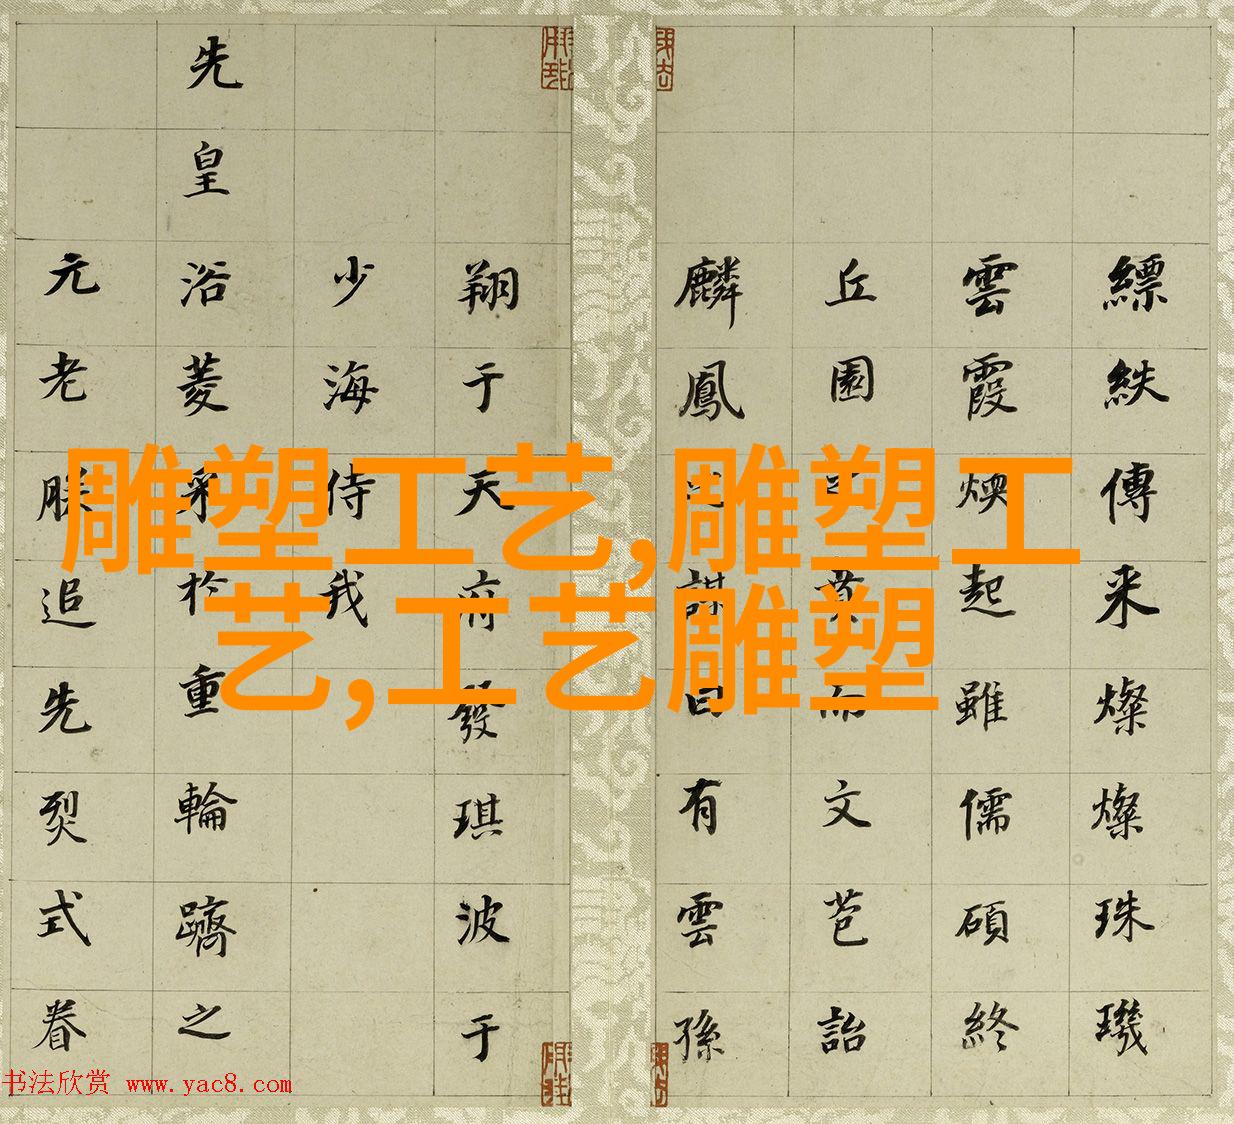 縹紩傳来燦燦珠璣
雲霞煥起雖儒碩終
丘園賁而文芑詒
麟鳳謀曰有雲孫
翔于天府發琪波于
少海侍我
先皇浴菱彩於重輪躋之
元老朕追先烈式眷
雕塑工艺,雕塑工
艺,工艺雕塑
书法欣赏 www.yac8.com